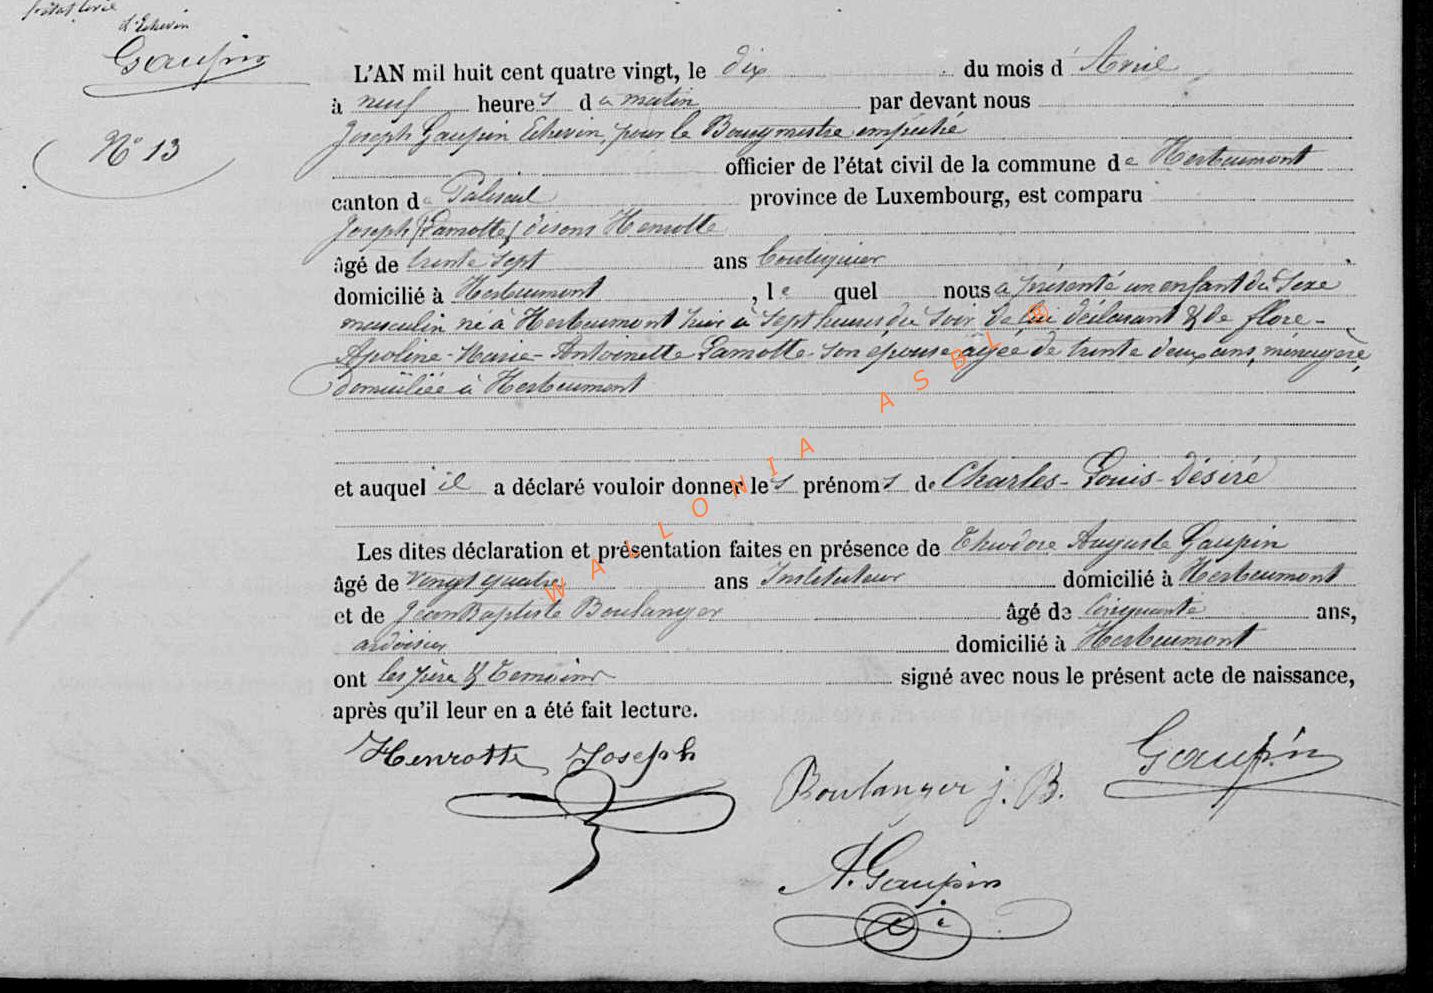 d'Echevin
Gaupin
N° 13
L'AN mil huit cent quatre vingt, le dix du mois d'Avril
à neuf heures du matin par devant nous
Joseph Gaupin Echevin, pour le Bourgmestre empêché
officier de l'état civil de la commune de Herbeumont
canton de Paliseul province de Luxembourg, est comparu
Joseph (Lamotte) disons Henrotte
âgé de trente sept ans
domicilié à Herbeumont, lequel nous a présenté un enfant du Sexe
masculin né à Herbeumont hier à Sept heures du Soir de lui déclarant & de flore-
Apoline-Marie-Antoinette Lamotte son épouse agée de trente deux ans, ménagère,
domiciliée à Herbeumont
et auquel il a déclaré vouloir donner les prénoms de Charles-Louis-Désiré
Les dites déclaration et présentation faites en présence de Théodore Auguste Gaupin
âgé de Vingt quatre ans Instituteur domicilié à Herbeumont
et de Jean Baptiste Boulanger âgé de Cinquante ans,
ardoisier domicilié à Herbeumont
ont les père & temoins signé avec nous le présent acte de naissance,
après qu'il leur en a été fait lecture.
Henrotte Joseph
Boulanger j. B.
Gaupin
A. Gaupin
WALLONIA ASBL ®